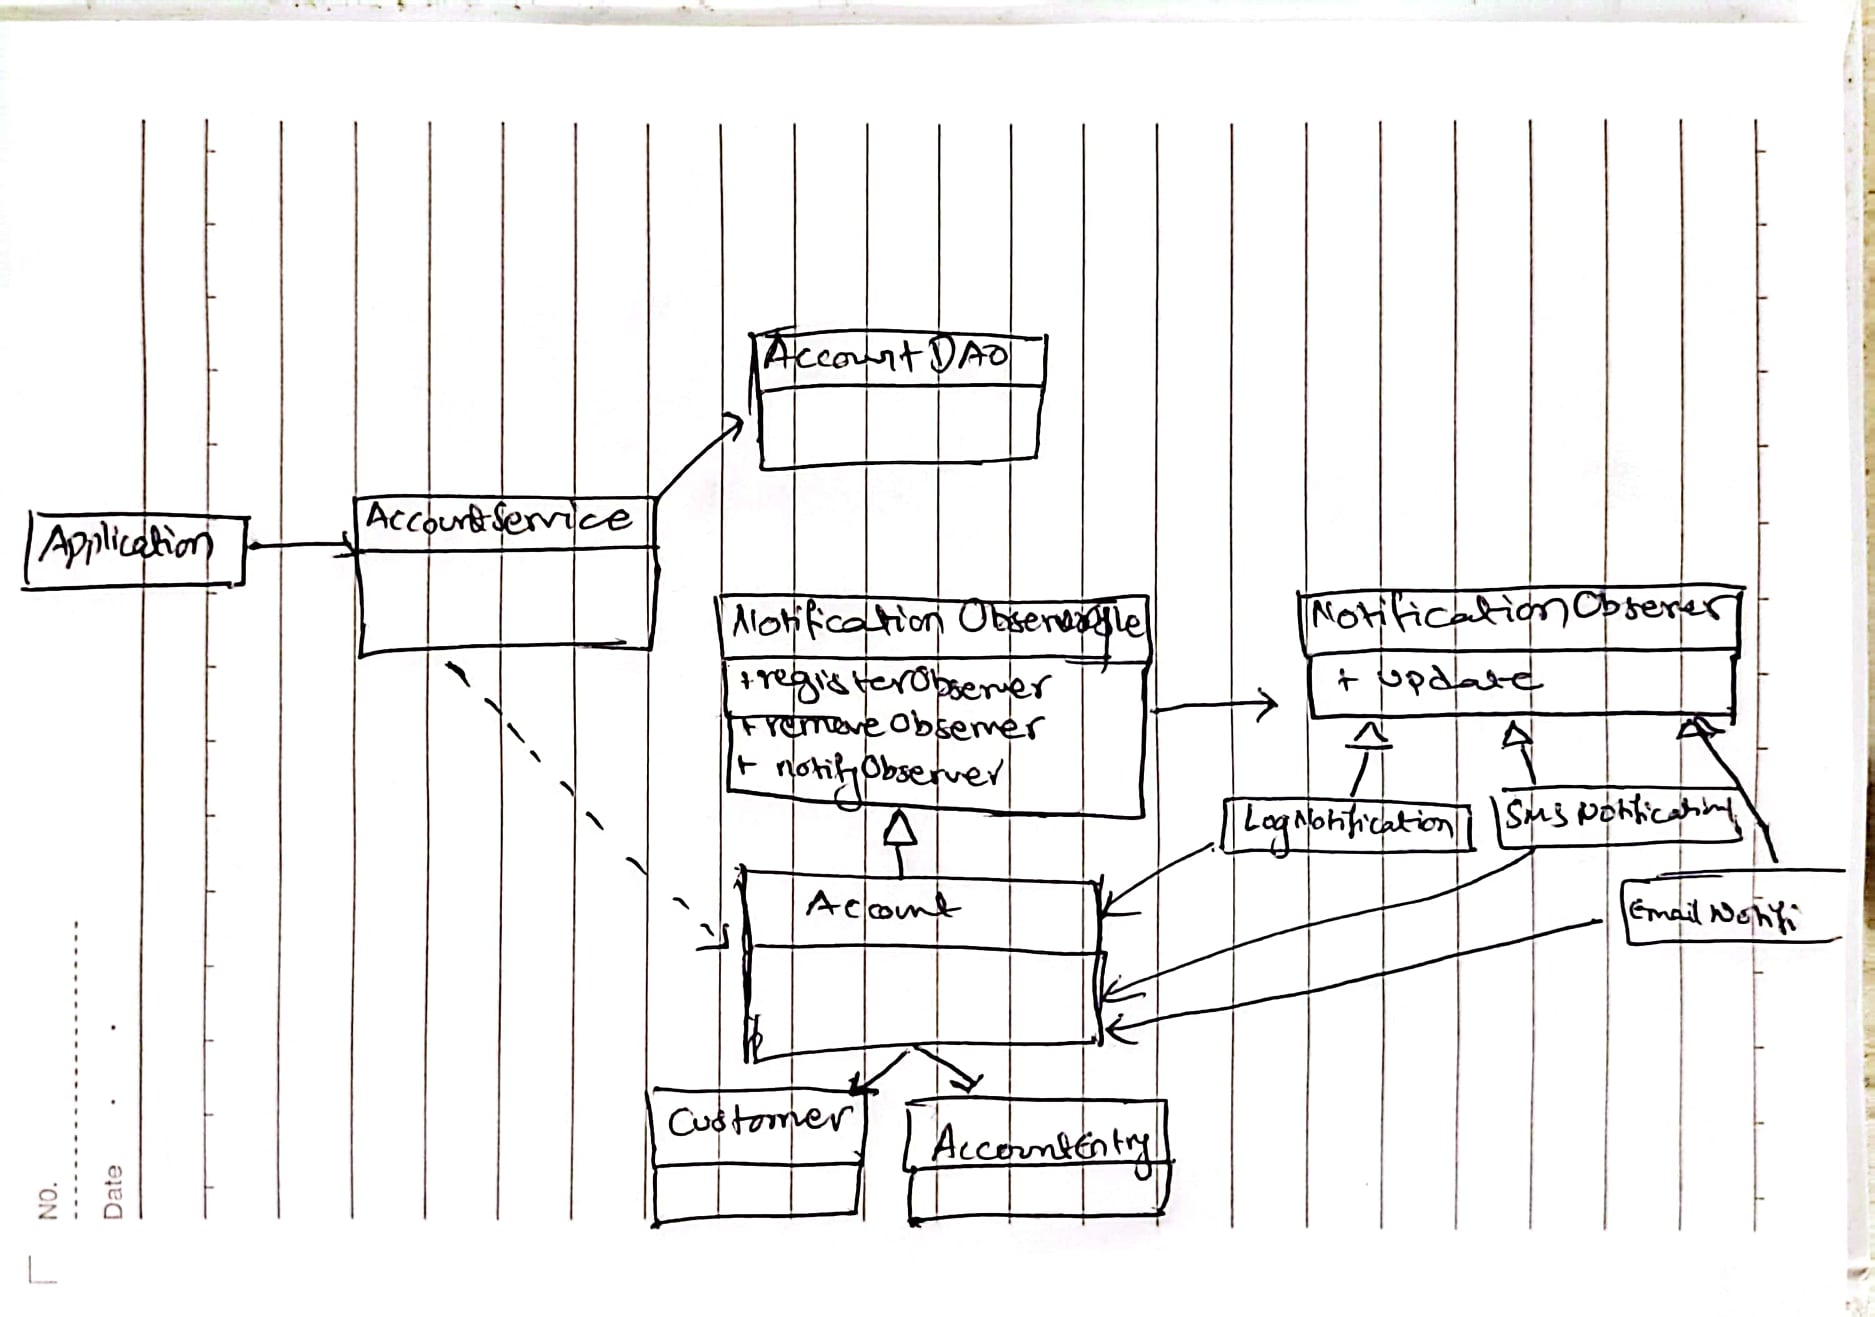 Account DAO
AccountService
Application
Notification Observable
+registerObserver
+removeObserver
+ notifyObserver
NotificationObserver
+ update
LogNotification
SMS Notification
Email Notifi
Account
Customer
AccountEntry
No.
Date